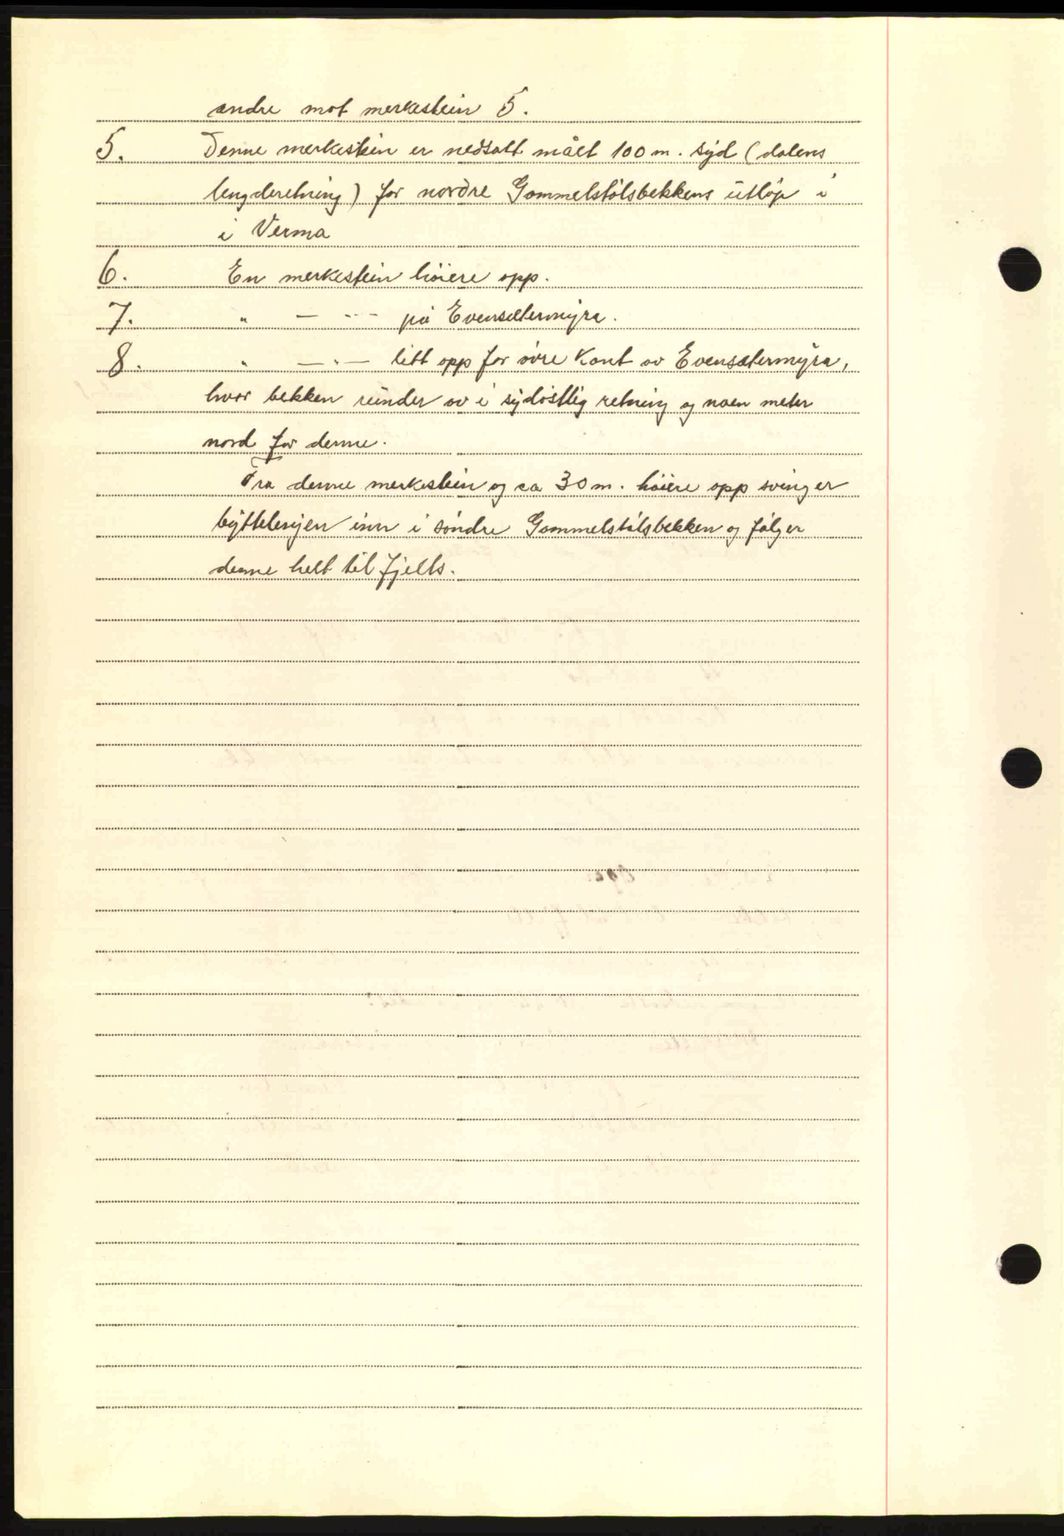 andre mot merkestein 5.
5. Denne merkestein er nedsatt målt 100 m. syd (dalens
lengderetning) for nordre Gammelstölsbekkens utløp i
i Verma
6. En merkestein höiere opp.
7. " — " — på Evensætermyra.
8. " — " — litt opp for övre Kant av Evensætermyra,
hvor bekken runder av i sydöstlig retning og noen meter
nord for denne.
Fra denne merkestein og ca 30 m. höiere opp svinger
byttelinjen inn i söndre Gammelstölsbekken og fölger
denne helt til fjells.